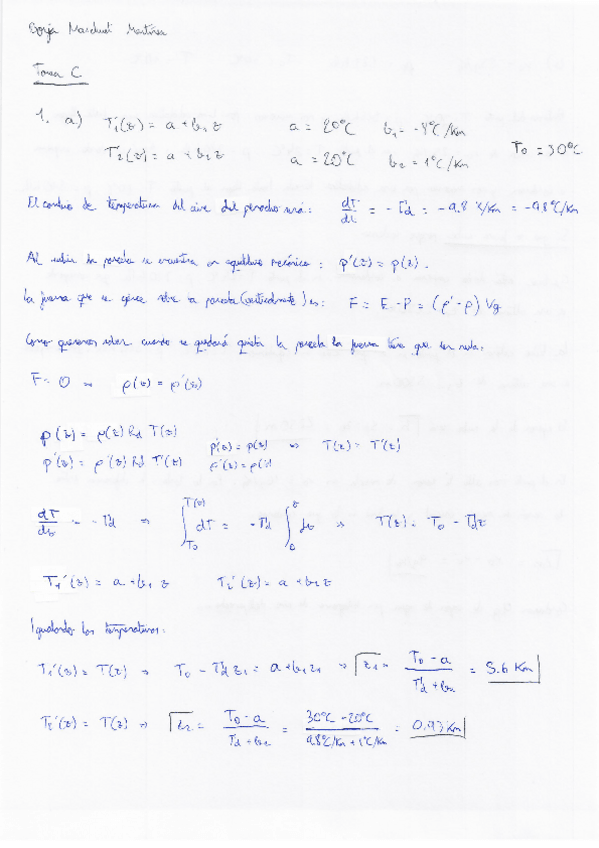 Borja
Tarea C
1. a) T₁'(z) = a + b₁z a = 20°C b₁ = -8°C/Km
T₂'(z) = a + b₂z a = 20°C b₂ = 1°C/Km T₀ = 30°C
El cambio de temperatura del aire del penacho será: dT/dz = -Γd = -9.8 °C/Km = -9.8°C/Km
Al subir la parcela se encuentra en equilibrio mecánico: p'(z) = p(z).
La fuerza que se ejerce sobre la parcela (verticalmente) es: F = E - P = (ρ' - ρ) Vg
Como queremos saber cuando se quedará quieta la parcela la fuerza tiene que ser nula:
F = 0 ⇒ ρ(z) = ρ'(z)
p(z) = ρ(z) Rd T(z)
p'(z) = ρ'(z) Rd T'(z) p'(z) = p(z) ρ'(z) = ρ(z) ⇒ T(z) = T'(z)
dT/dz = -Γd ⇒ ∫_{T₀}^{T(z)} dT = -Γd ∫_0^z dz ⇒ T(z) = T₀ - Γd z
T₁'(z) = a + b₁ z T₂'(z) = a + b₂ z
Igualando las temperaturas:
T₁'(z) = T(z) ⇒ T₀ - Γd z₁ = a + b₁z₁ ⇒ z₁ = (T₀ - a)/(Γd + b₁) = 5.6 Km
T₂'(z) = T(z) ⇒ z₂ = (T₀ - a)/(Γd + b₂) = (30°C - 20°C)/(9.8°C/Km + 1°C/Km) = 0.93 Km